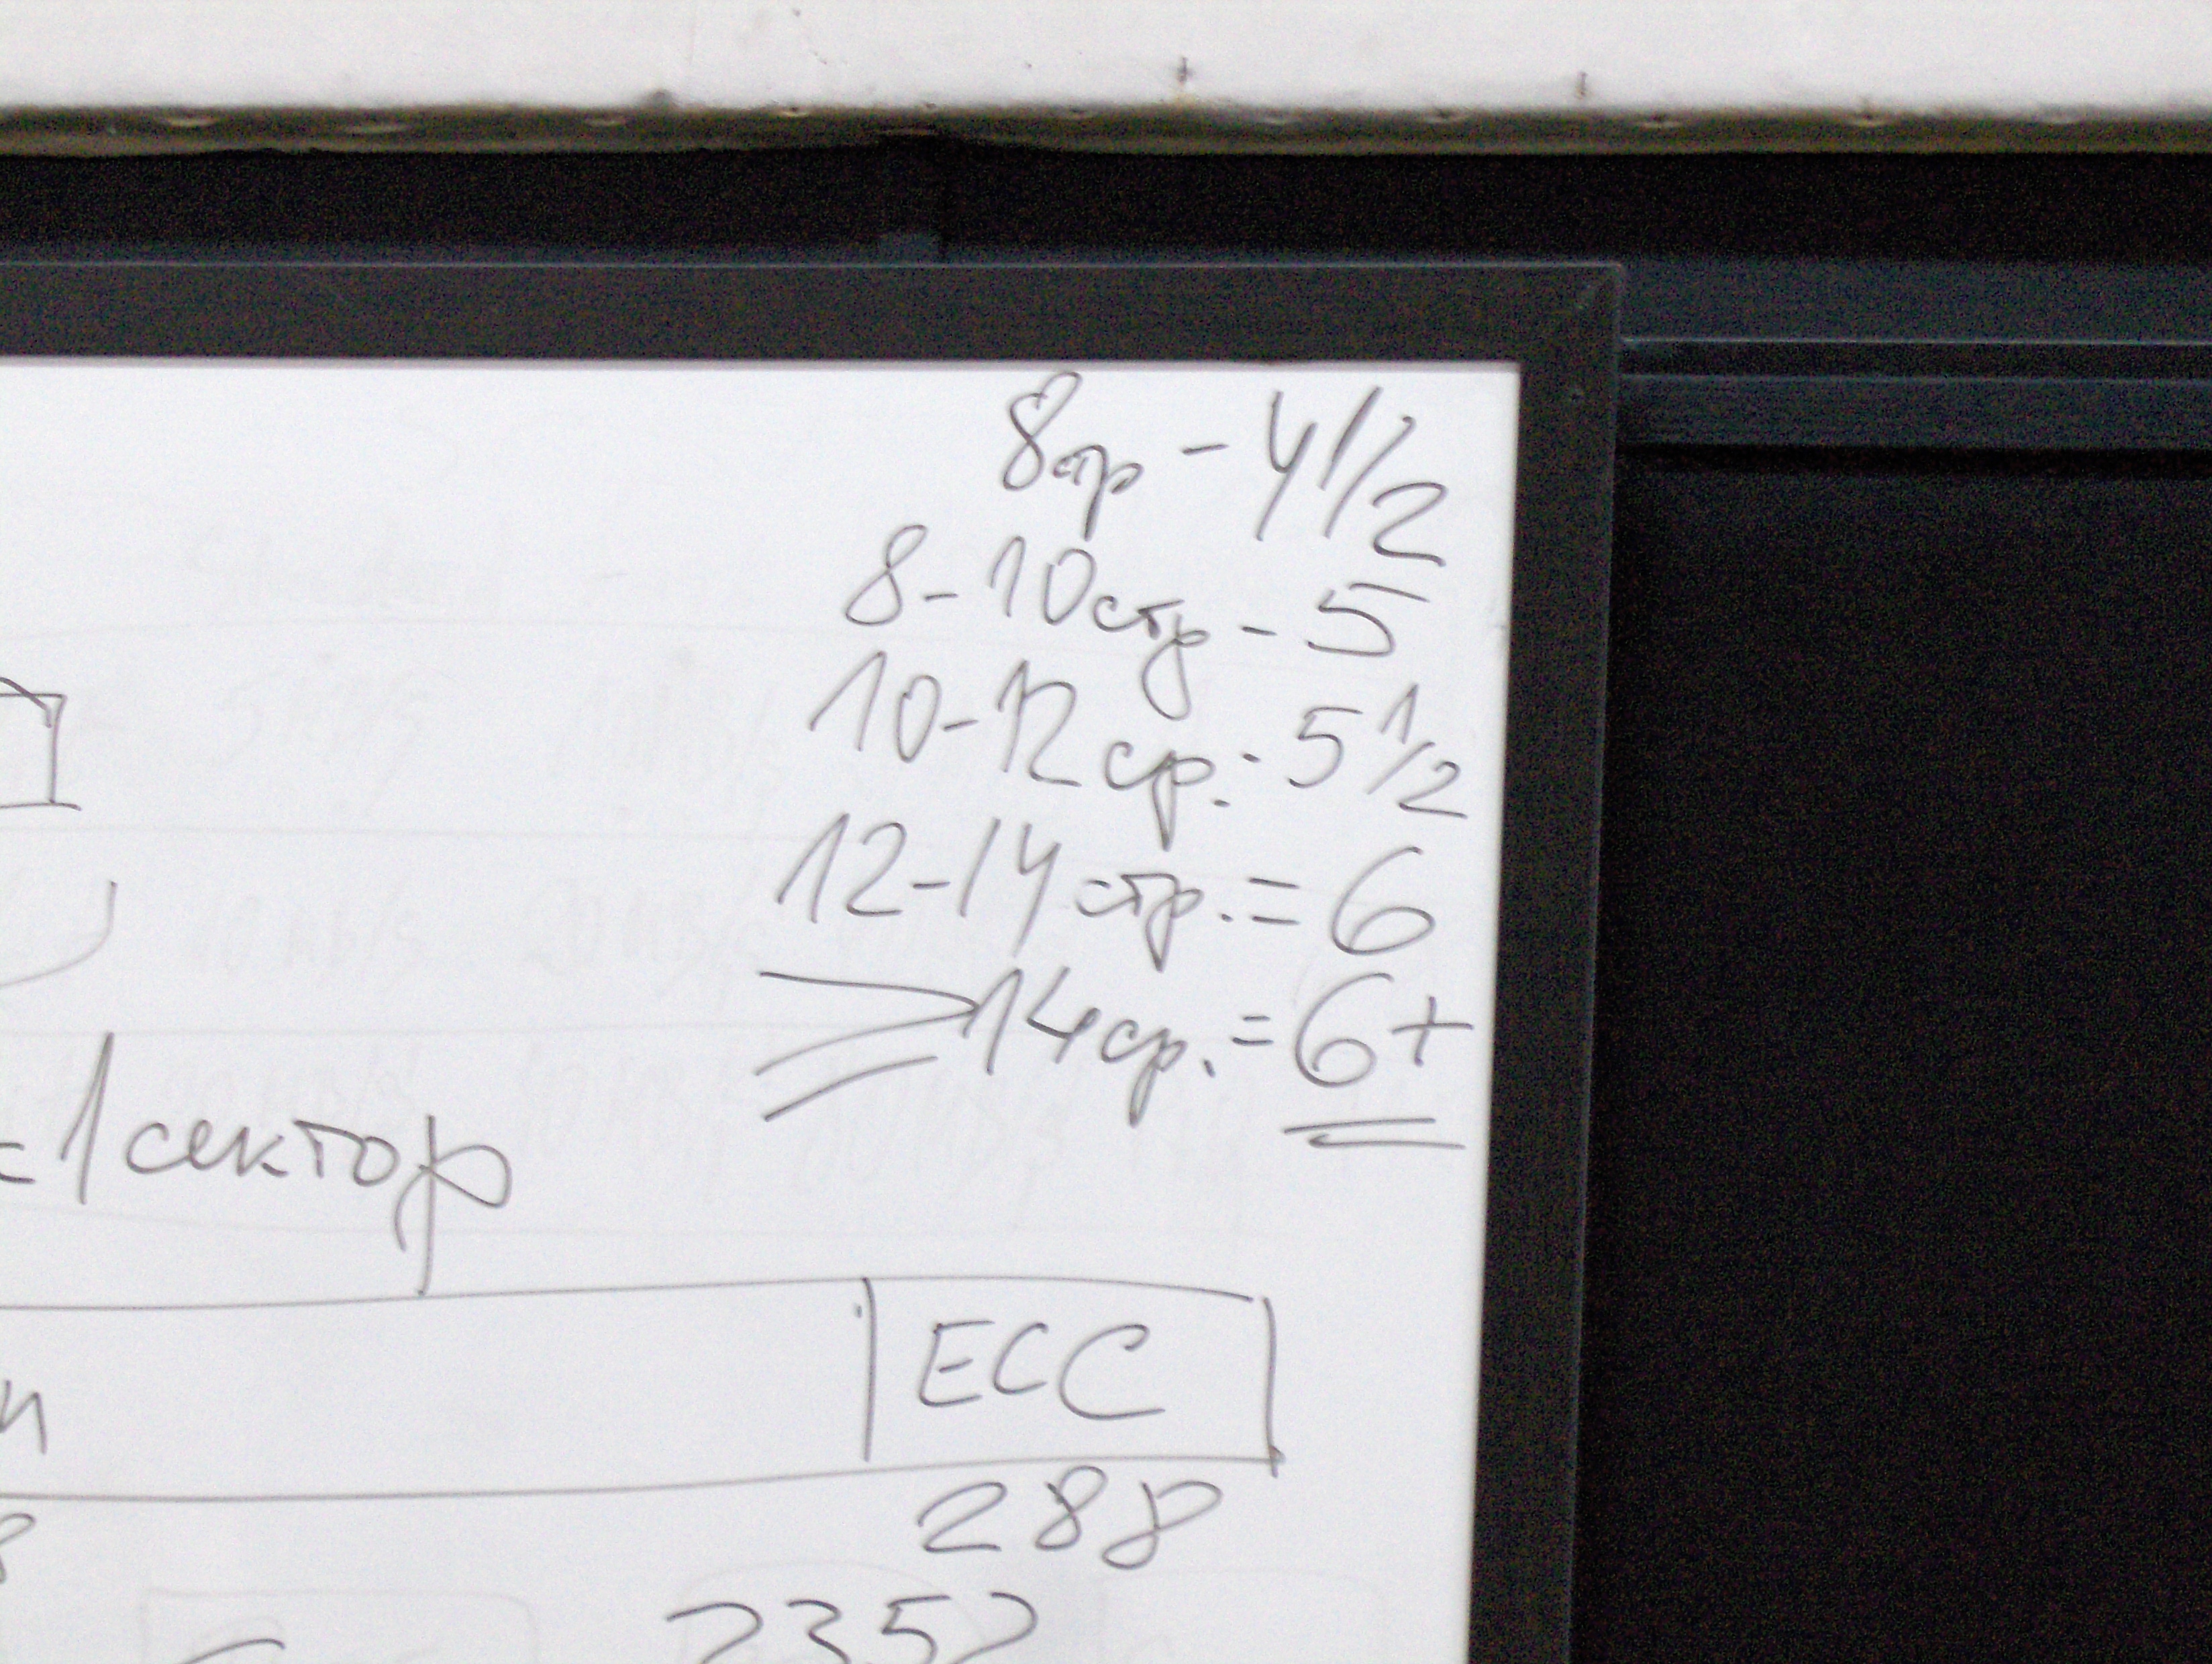 8стр - 4 1/2
8-10стр - 5
10-12 стр. - 5 1/2
12-14 стр. = 6
>14 стр. = 6+
=1 сектор
ECC
288
2352